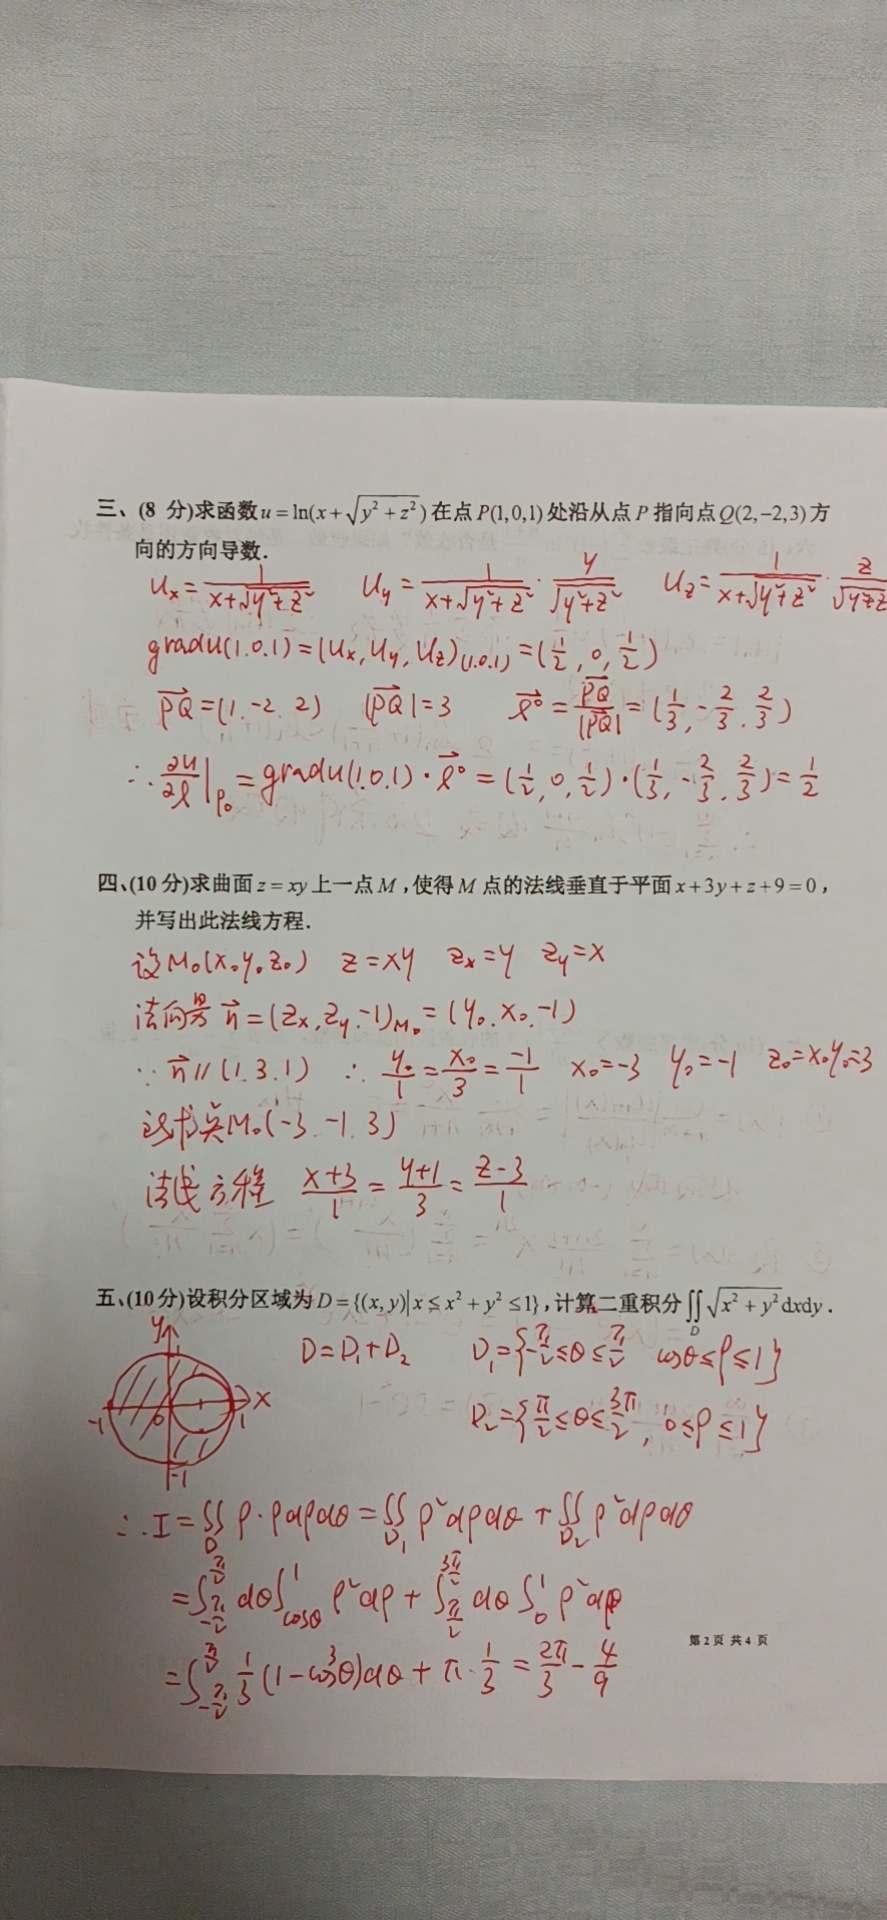 三、(8 分)求函数 u = ln(x + √(y² + z²)) 在点 P(1,0,1) 处沿从点 P 指向点 Q(2,−2,3) 方
向的方向导数.
Ux = 1/(x+√(y²+z²))  Uy = 1/(x+√(y²+z²)) · y/√(y²+z²)  Uz = 1/(x+√(y²+z²)) · z/√(y²+z²
gradu(1.0.1) = (Ux, Uy, Uz)(1.0.1) = (1/2, 0, 1/2)
PQ→ = (1. -2. 2)  |PQ→| = 3  l→° = PQ→/|PQ→| = (1/3, -2/3, 2/3)
∴ ∂u/∂l|P₀ = gradu(1.0.1) · l→° = (1/2, 0, 1/2) · (1/3, -2/3, 2/3) = 1/2
四、(10 分)求曲面 z = xy 上一点 M ,使得 M 点的法线垂直于平面 x + 3y + z + 9 = 0 ,
并写出此法线方程.
设 M₀(x₀y₀z₀)  z = xy  zx = y  zy = x
法向量为 n→ = (zx, zy. -1)M₀ = (y₀. x₀. -1)
∵ n→ // (1. 3. 1)  ∴ y₀/1 = x₀/3 = -1/1  x₀ = -3  y₀ = -1  z₀ = x₀y₀ = 3
M₀(-3. -1. 3)
法线方程 (x+3)/1 = (y+1)/3 = (z-3)/1
五、(10 分)设积分区域为 D = {(x, y)| x ≤ x² + y² ≤ 1} ,计算二重积分 ∬D √(x² + y²) dxdy .
y 1 D = D₁ + D₂  D₁ = {-π/2 ≤ θ ≤ π/2  cosθ ≤ ρ ≤ 1}
-1 0 1 x D₂ = {π/2 ≤ θ ≤ 3π/2, 0 ≤ ρ ≤ 1}
-1
∴ I = ∬D ρ · ρdρdθ = ∬D₁ ρ²dρdθ + ∬D₂ ρ²dρdθ
= ∫_{-π/2}^{π/2} dθ ∫_{cosθ}^{1} ρ²dρ + ∫_{π/2}^{3π/2} dθ ∫_0^1 ρ²dρ
= ∫_{-π/2}^{π/2} 1/3 (1 - cos³θ)dθ + π · 1/3 = 2π/3 - 4/9
第 2 页 共 4 页